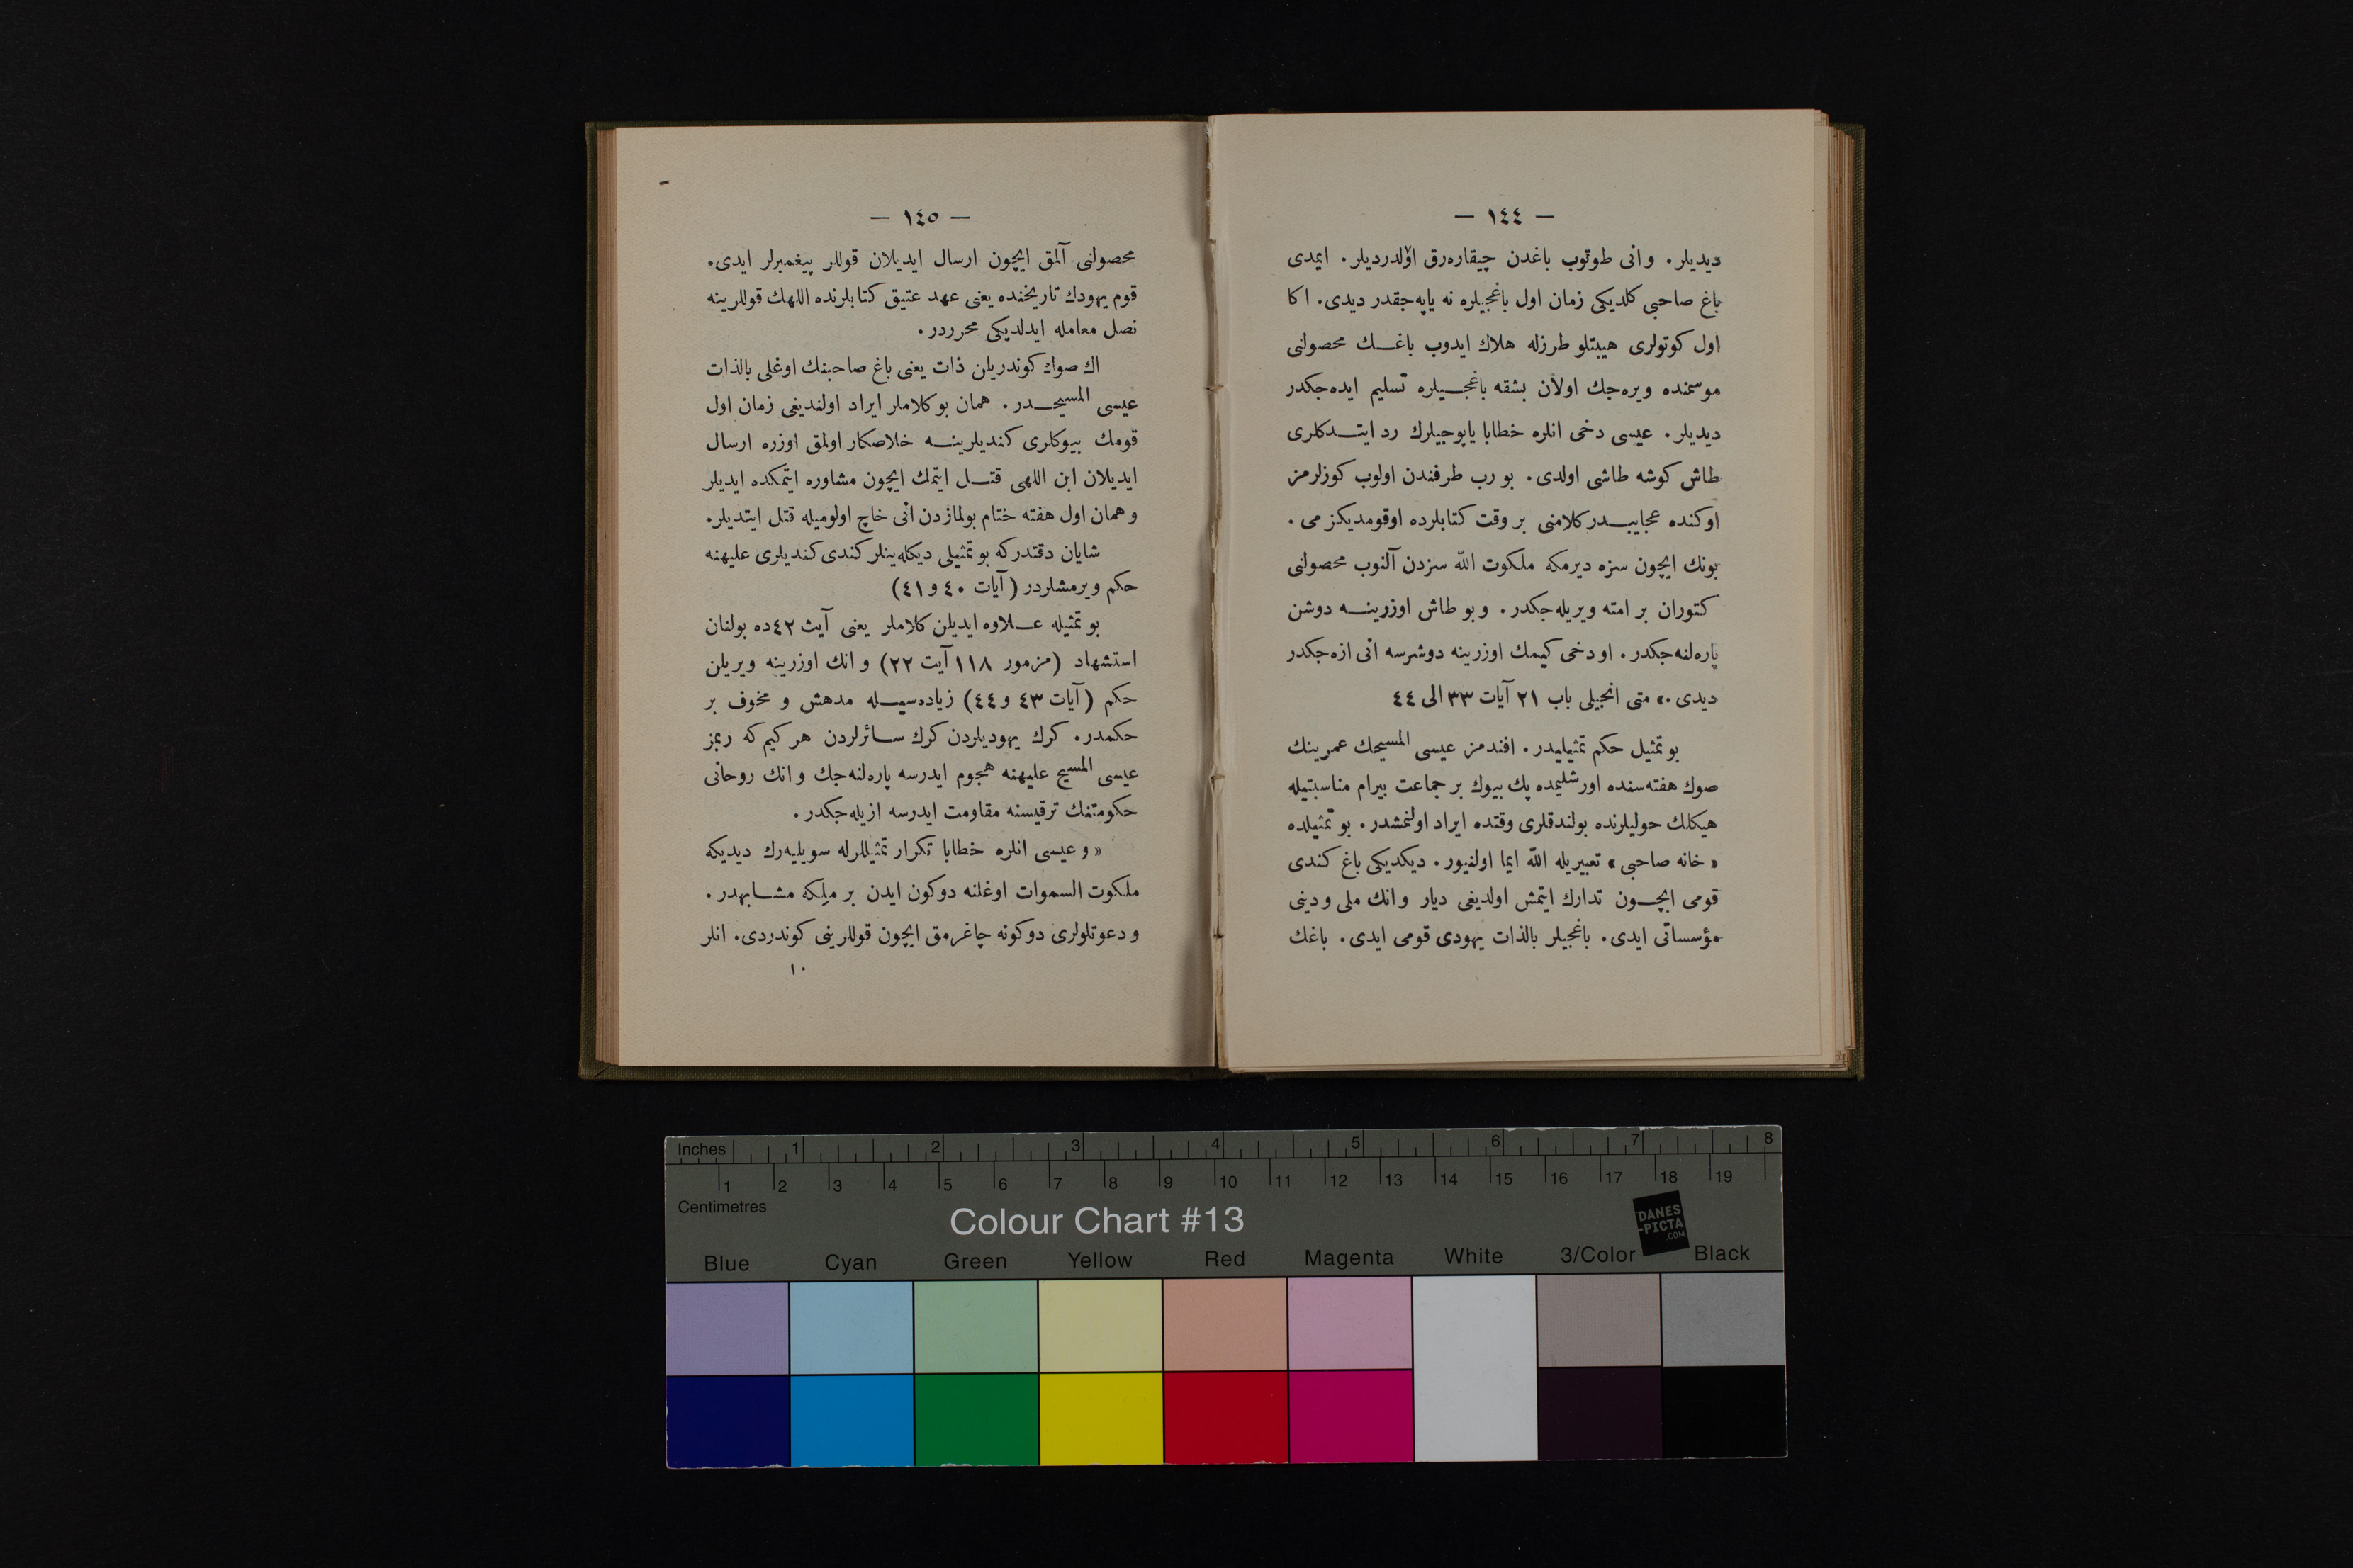 — ١٤٤ —
ديديلر. وانی طوتوب باغدن چيقاره‌رق اۆلدرديلر. ايمدی
باغ صاحبی كلديكی زمان اول باغجيلره نه ياپه‌جقدر ديدی. اكا
اول كوتولری هيبتلو طرزله هلاك ايدوب باغك محصولنی
موسمنده ويره‌جك اولان بشقه باغجيلره تسليم ايده‌جكدر
ديديلر. عيسی دخی انلره خطابا ياپوجيلرك رد ايتدكلری
طاش كوشه طاشی اولدی. بو رب طرفندن اولوب كوزلرمز
اوكنده عجايبدر كلامنی بر وقت كتابلرده اوقومديكز می.
بونك ايچون سزه ديرمكه ملكوت اللّه سزدن آلنوب محصولنی
كتوران بر امته ويريله‌جكدر. وبو طاش اوزرينه دوشن
پاره‌لنه‌جكدر. او دخی كيمك اوزرينه دوشرسه انی ازه‌جكدر
ديدی.» متی انجيلی باب ٢١ آيات ٣٣ الی ٤٤
بو تمثيل حكم تمثيليدر. افندمز عيسی المسيحك عمرينك
صوك هفته‌سنده اورشليمده پك بيوك بر جماعت بيرام مناسبتيله
هيكلك حوليلرنده بولندقلری وقتده ايراد اولنمشدر. بو تمثيلده
«خانه صاحبی» تعبيريله اللّه ايما اولنيور. ديكديكی باغ كندی
قومی ايچون تدارك ايتمش اولديغی ديار وانك ملی ودينی
مؤسساتی ايدی. باغجيلر بالذات يهودی قومی ايدی. باغك
— ١٤٥ —
محصولنی آلمق ايچون ارسال ايديلان قوللر پيغمبرلر ايدی.
قوم يهودك تاريخنده يعنی عهد عتيق كتابلرنده اللهك قوللرينه
نصل معامله ايدلديكی محرردر.
اك صوك كوندريلن ذات يعنی باغ صاحبنك اوغلی بالذات
عيسی المسيحدر. همان بو كلاملر ايراد اولنديغی زمان اول
قومك بيوكلری كنديلرينه خلاصكار اولمق اوزره ارسال
ايديلان ابن اللهی قتل ايتمك ايچون مشاوره ايتمكده ايديلر
وهمان اول هفته ختام بولمازدن انی خاچ اولوميله قتل ايتديلر.
شايان دقتدركه بو تمثيلی ديكله‌ينلر كندی كنديلری عليهنه
حكم ويرمشلردر (آيات ٤٠ و٤١)
بو تمثيله علاوه ايديلن كلاملر يعنی آيت ٤٢ده بولنان
استشهاد (مزمور ١١٨ آيت ٢٢) وانك اوزرينه ويريلن
حكم (آيات ٤٣ و٤٤) زياده‌سيله مدهش و مخوف بر
حكمدر. كرك يهوديلردن كرك سائرلردن هر كيم كه ربمز
عيسی المسيح عليهنه هجوم ايدرسه پاره‌لنه‌جك وانك روحانی
حكومتنك ترقيسنه مقاومت ايدرسه ازيله‌جكدر.
«وعيسی انلره خطابا تكرار تمثيللرله سويليه‌رك ديديكه
ملكوت السموات اوغلنه دوكون ايدن بر ملكه مشابهدر.
ودعوتلولری دوكونه چاغرمق ايچون قوللرينی كوندردی. انلر
١٠
Inches 1 2 3 4 5 6 7 8
1 2 3 4 5 6 7 8 9 10 11 12 13 14 15 16 17 18 19
Centimetres
Colour Chart #13
DANES
-PICTA
.COM
Blue Cyan Green Yellow Red Magenta White 3/Color Black